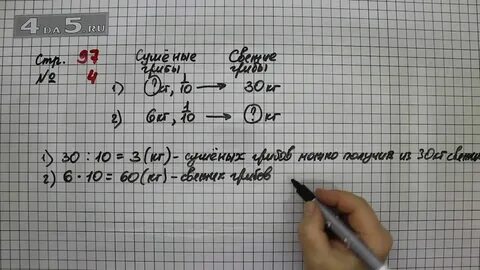 4DA5.RU
Стр. 97
№ 4
Сушёные грибы
Свежие грибы
1) ? кг, 1/10 → 30 кг
2) 6 кг, 1/10 → ? кг
1) 30 : 10 = 3 (кг) - сушёных грибов можно получить из 30 кг свежи
2) 6 · 10 = 60 (кг) - свежих грибов